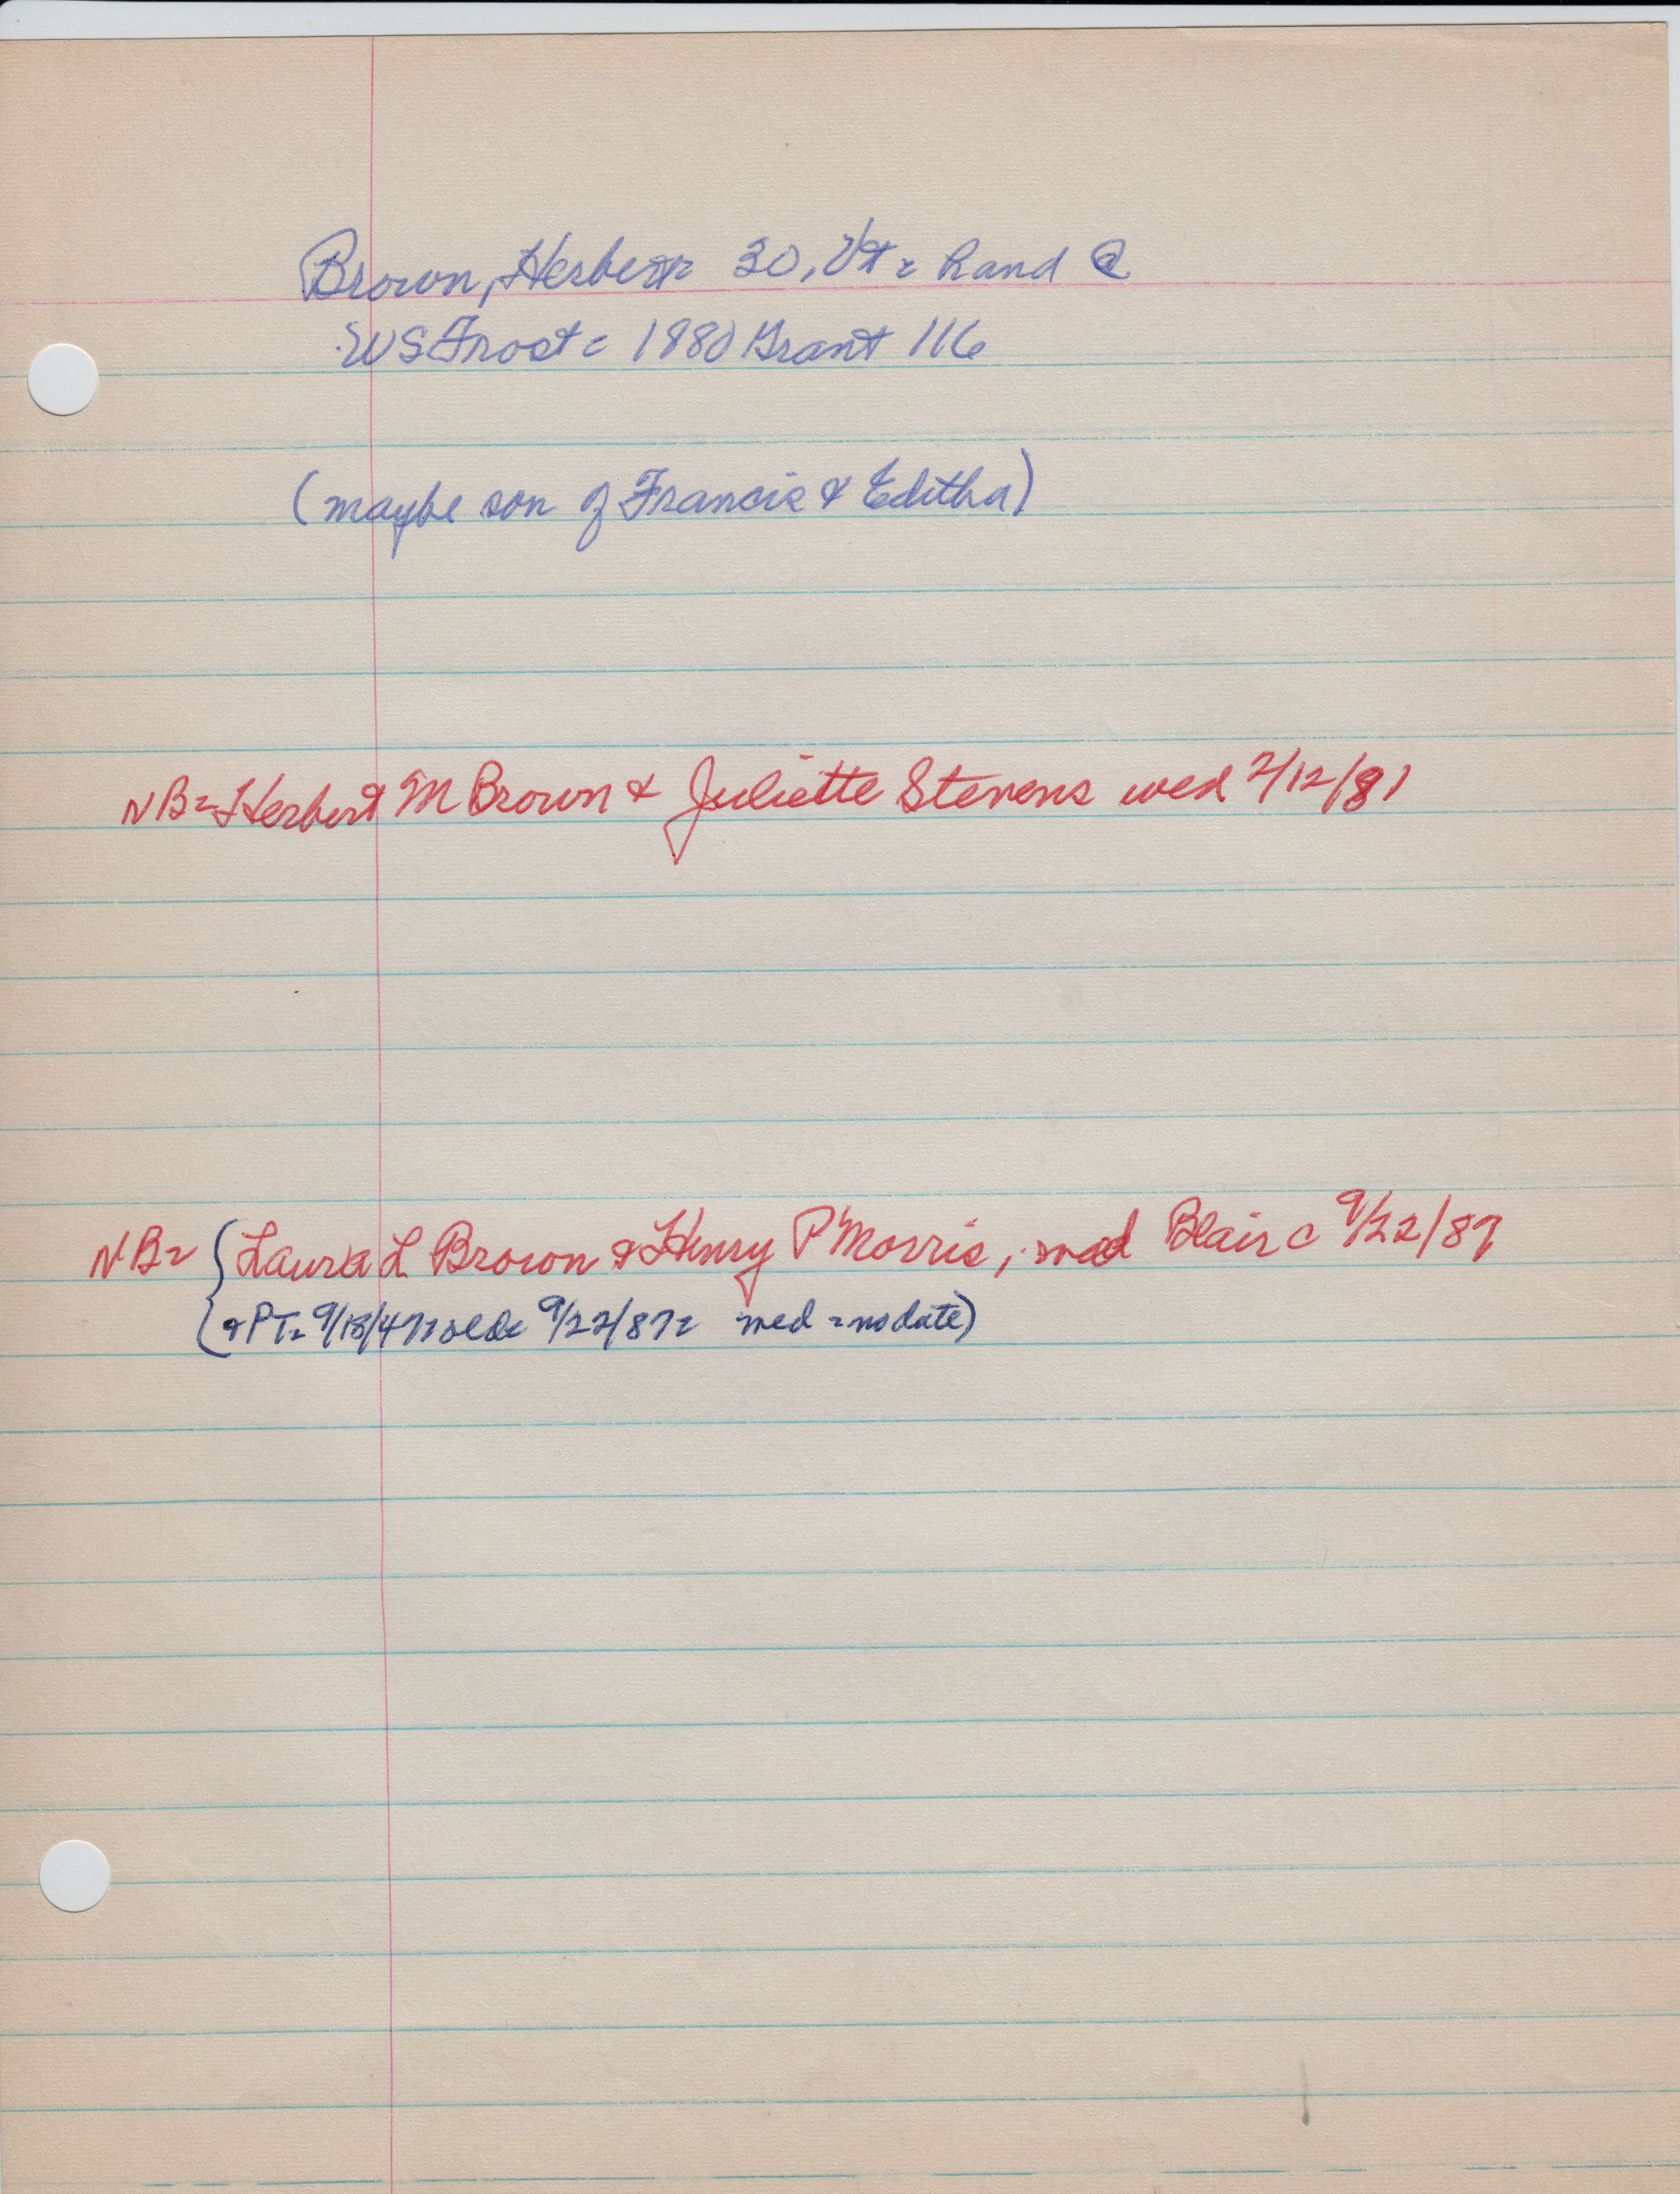 Brown, Herbert = 30, Vt = hand @
WS Frost = 1880 Grant 116
(maybe son of Francis & Editha)
NB = Herbert M Brown & Juliette Stevens wed 2/12/81
NB = { Laura L Brown & Henry P Morris, med Blair c 9/22/87
(& PT = 9/18/47 9/22/87 = med = no date)